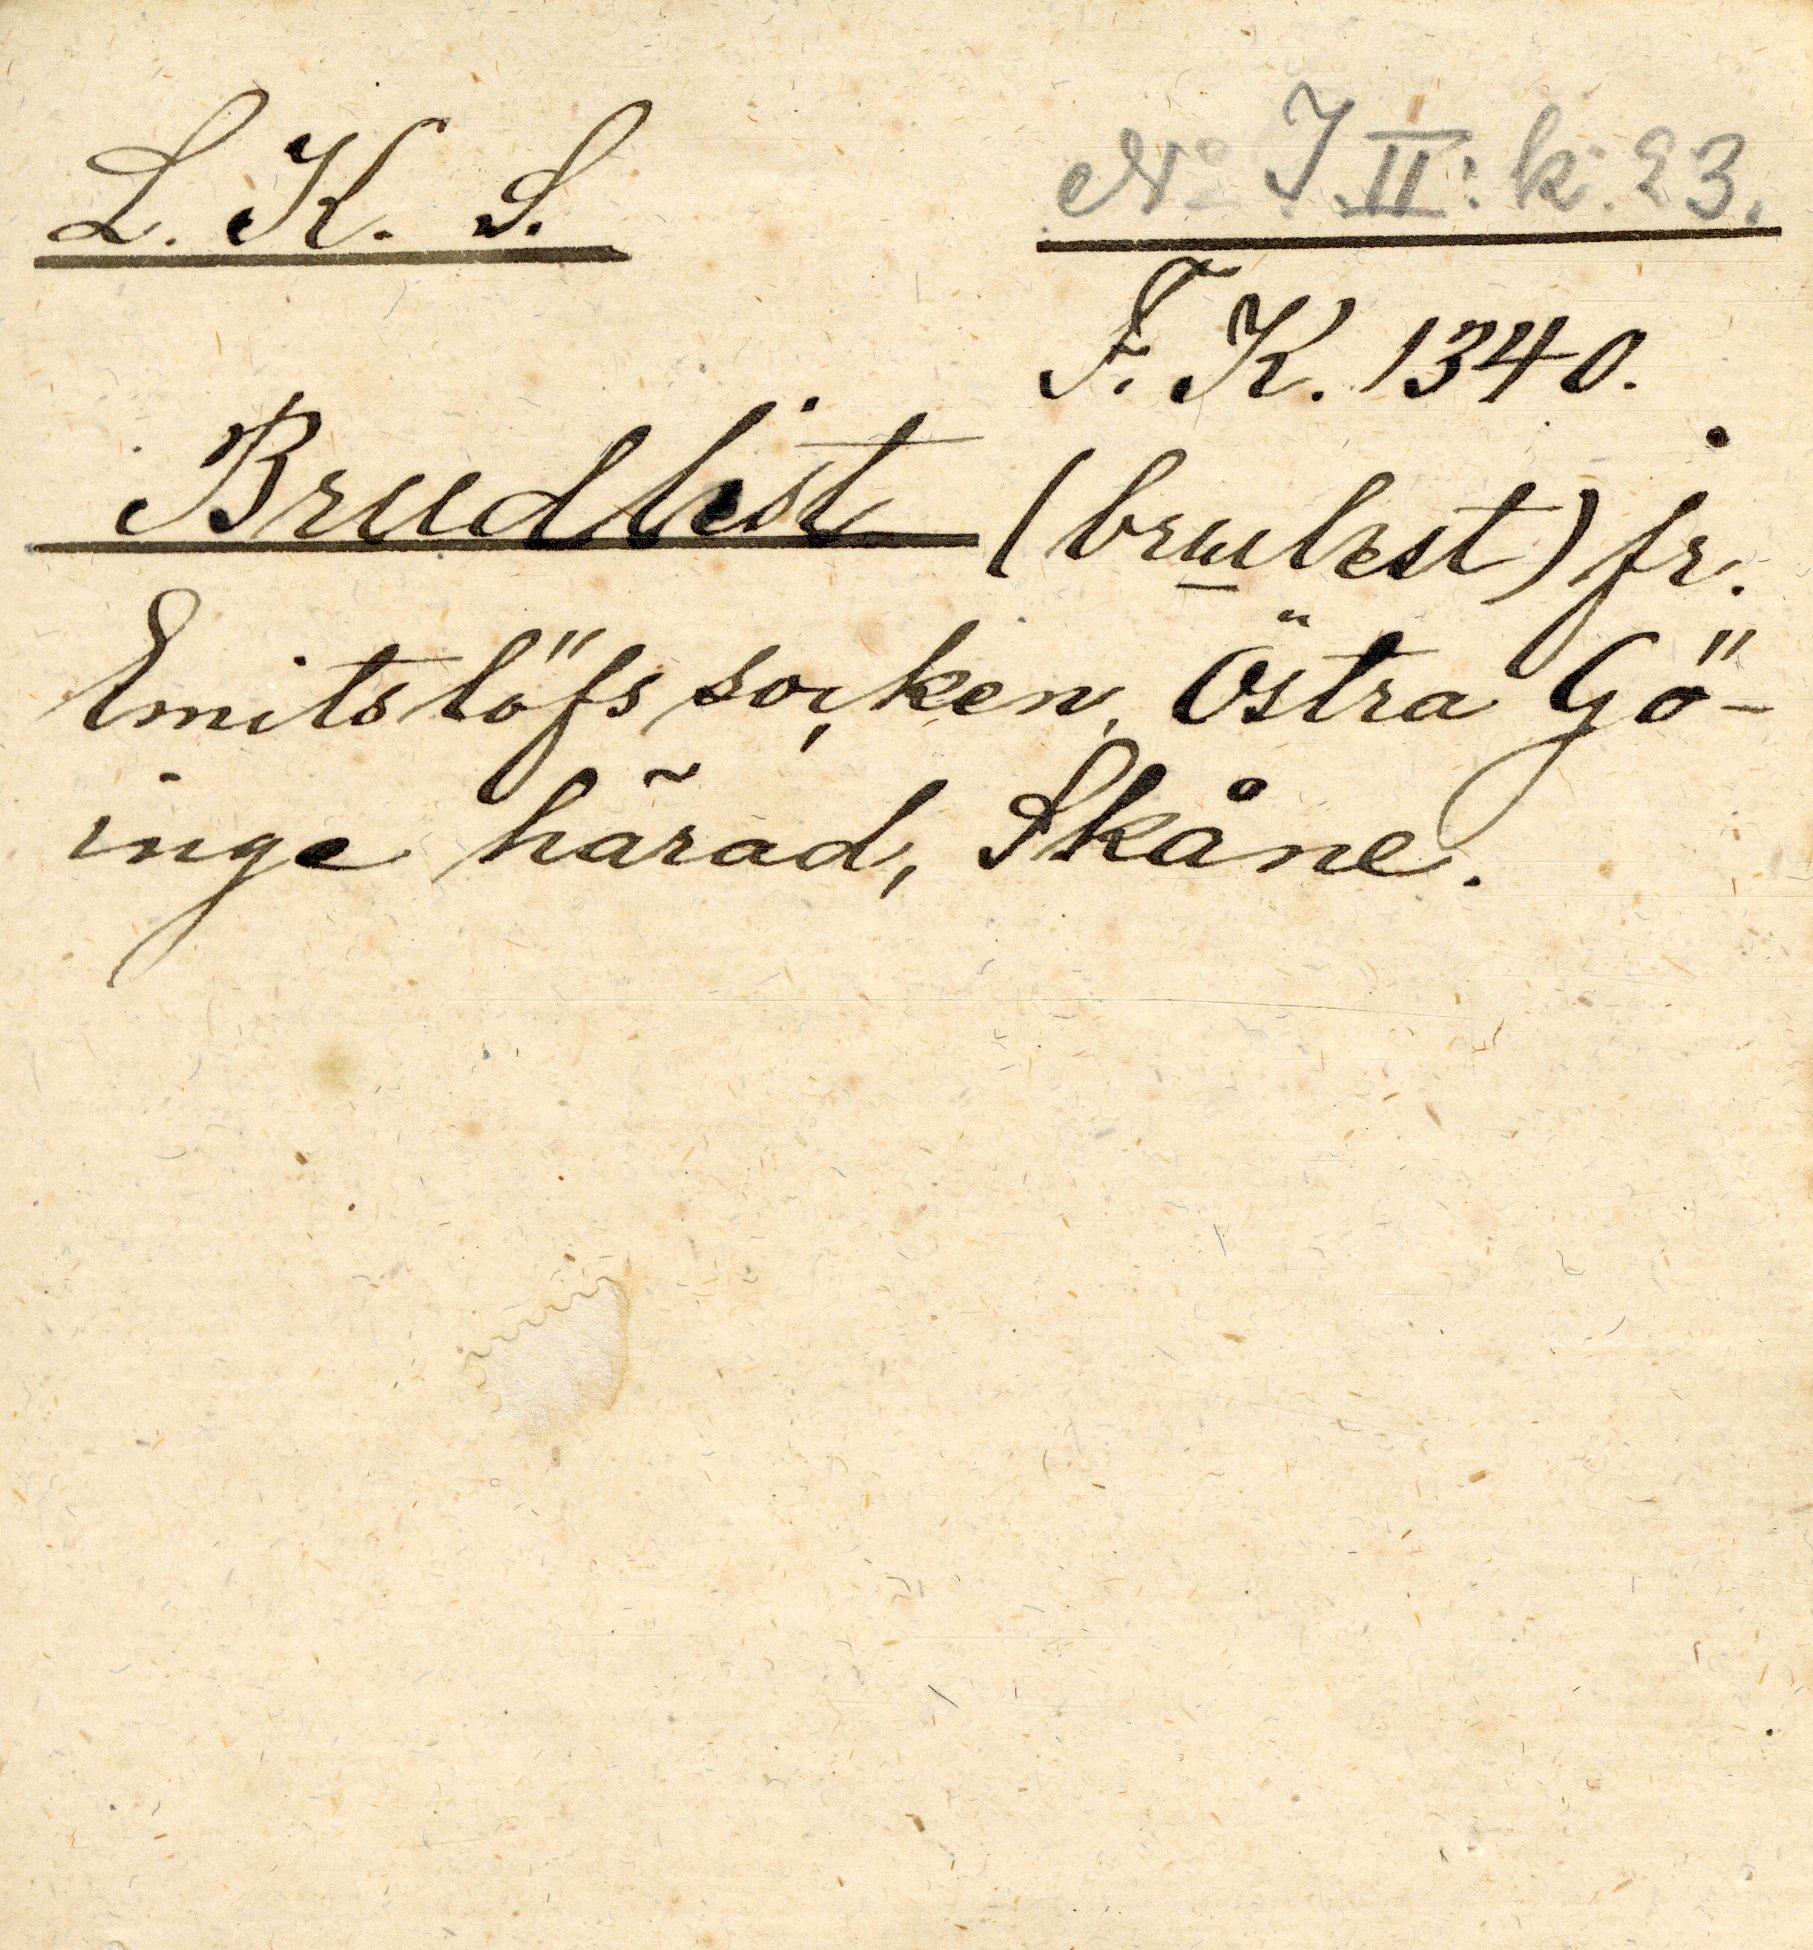 L. K. S.
No I II: k. 23.
F. K. 1340.
Brudlist (brulest) fr.
Emitslöfs socken, Östra Gö-
inge härad, Skåne.